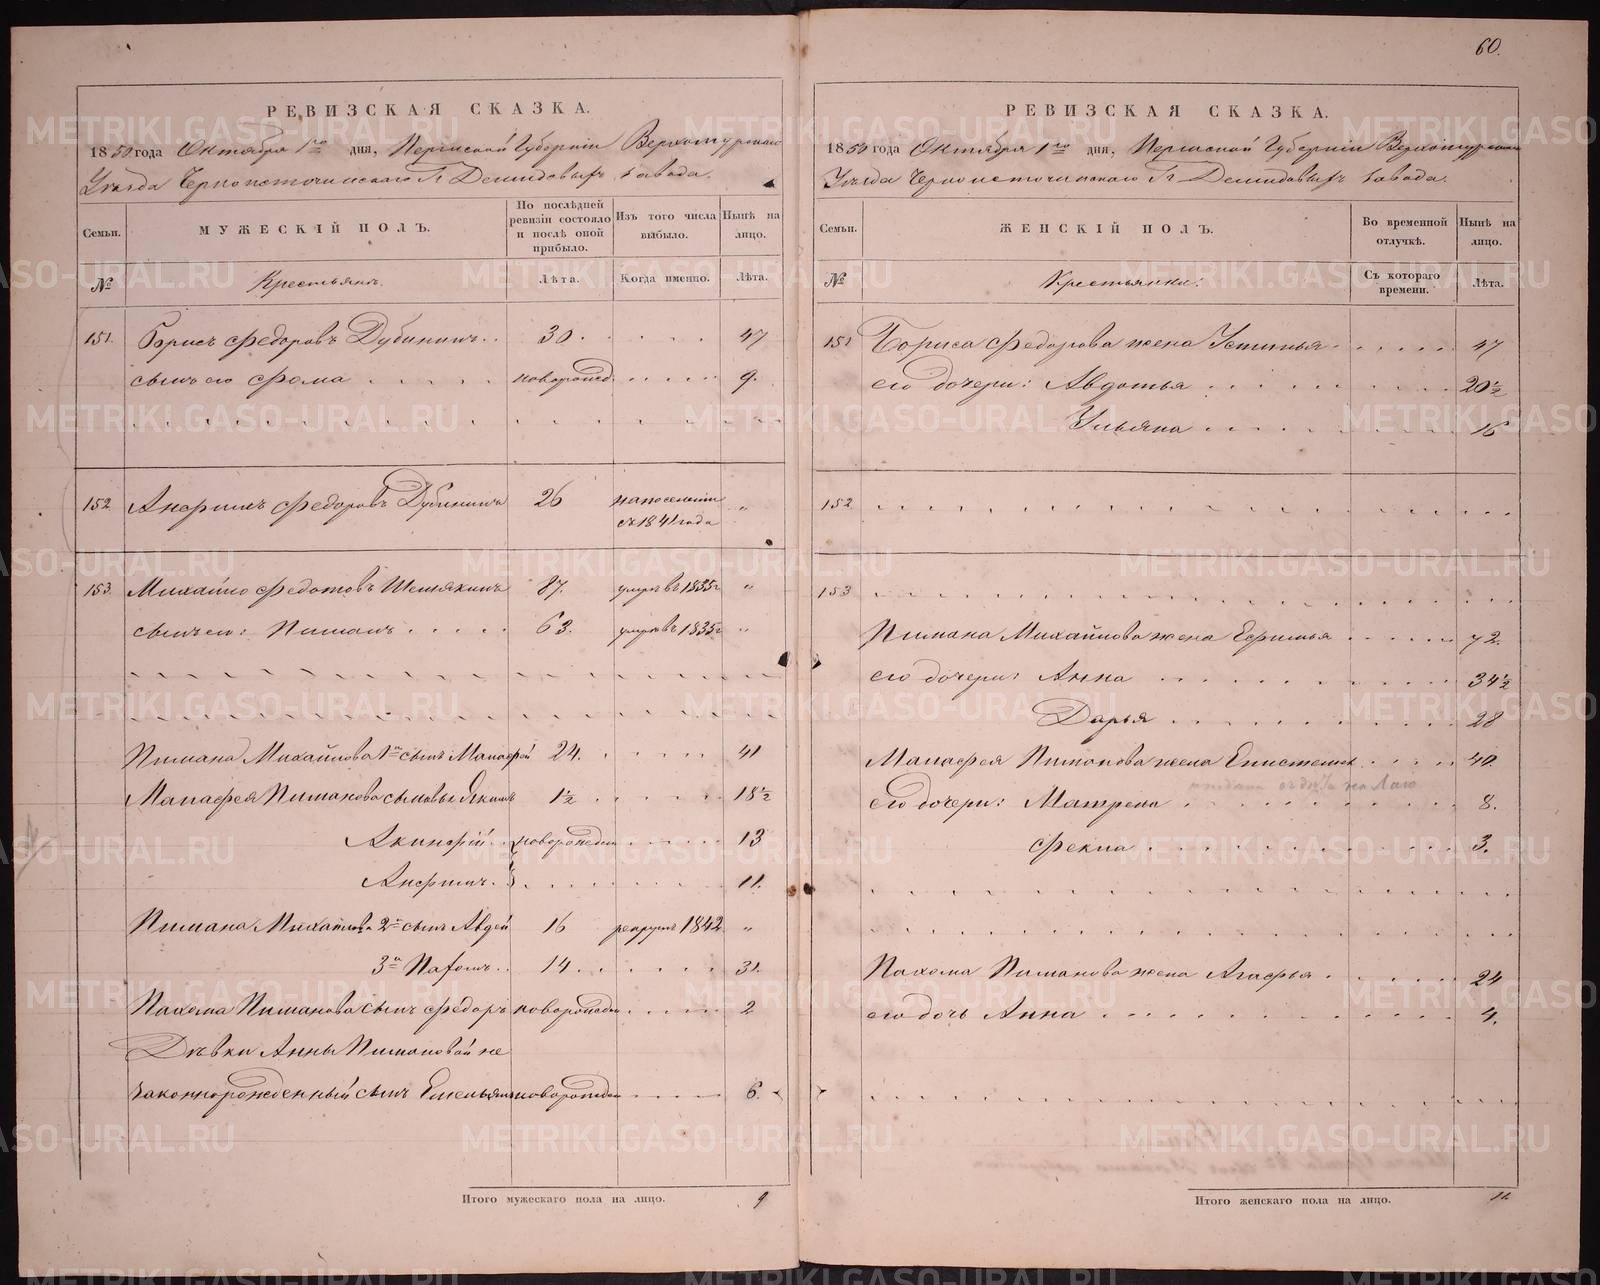 60.
РЕВИЗСКАЯ СКАЗКА.
1850 года Октября 1го дня, Пермской Губерніи Верхотурскаго
Уѣзда Черноисточинскаго Гг Демидовыхъ Завода.
Семьи. МУЖЕСКІЙ ПОЛЪ. По послѣдней ревизіи состояло и послѣ оной прибыло. Изъ того числа выбыло. Нынѣ на лицо.
№ Крестьянъ. Лѣта. Когда именно. Лѣта.
151. Борисъ Федоровъ Дубининъ 30 47
сынъ его Фома новорожд 9.
152 Анфимъ Федоровъ Дубининъ 26 на поселеніи съ 1841 года „
153. Михайло Федотовъ Шемякинъ 87. умеръ въ 1835г „
сынъ его: Пиманъ 63. умеръ въ 1835г „
Пимана Михайлова 1й сынъ Манафей 24. 41
Манафея Пиманова сыновья Якимъ 1½ 18½
Акинфій новорожден 13
Анфимъ. 11.
Пимана Михайлова 2й сынъ Авдей 16 рекрутъ 1842 „
3й Пахомъ 14. 31.
Пахома Пиманова сынъ Федоръ новорожден 2
Дѣвки Анны Пимановой не
законнорожденный сынъ Емельянъ новорожден 6.
Итого мужескаго пола на лицо. 9
РЕВИЗСКАЯ СКАЗКА.
1850 года Октября 1го дня, Пермской Губерніи Верхотурскаго
Уѣзда Черноисточинскаго Гг Демидовыхъ Завода.
Семьи. ЖЕНСКІЙ ПОЛЪ. Во временной отлучкѣ. Нынѣ на лицо.
№ Крестьянки: Съ котораго времени. Лѣта.
151 Бориса Федорова жена Устинья 47
его дочери: Авдотья 20½
Ульяна 16
152
153
Пимана Михайлова жена Ефимья 72.
его дочери: Анна 34½
Дарья 28
Манафея Пиманова жена Епистемія 40.
его дочери: Матрена 8.
Фекла 3.
Пахома Пиманова жена Агафья 24
его дочь Анна 4.
Итого женскаго пола на лицо. 11
METRIKI.GASO-URAL.RU